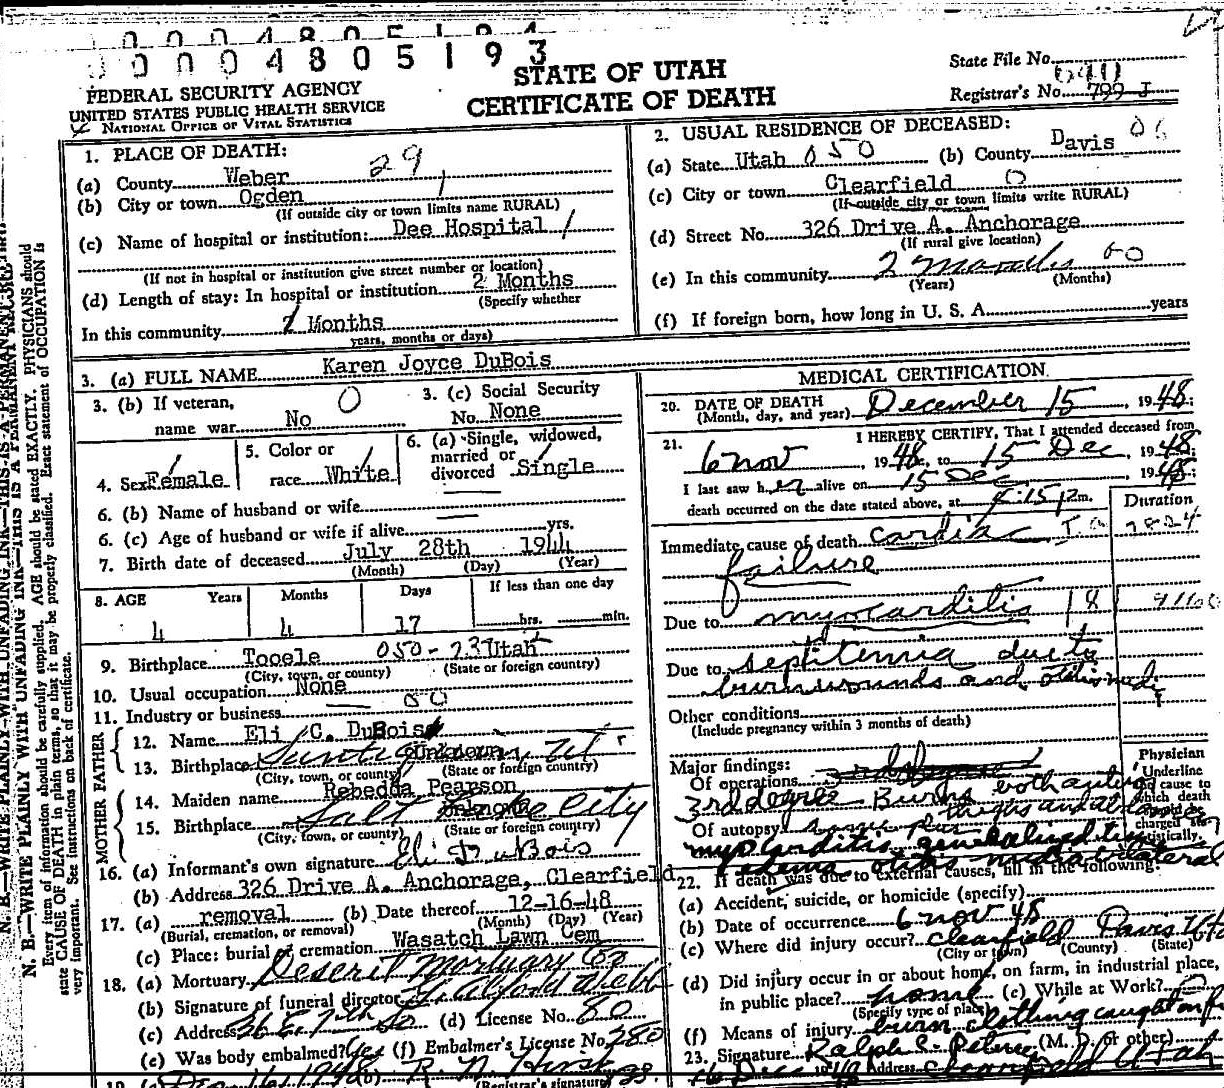 0004805193
STATE OF UTAH
CERTIFICATE OF DEATH
FEDERAL SECURITY AGENCY
UNITED STATES PUBLIC HEALTH SERVICE
NATIONAL OFFICE OF VITAL STATISTICS
State File No.
Registrar's No. 799 J
1. PLACE OF DEATH: 29
(a) County Weber
(b) City or town Ogden
(If outside city or town limits name RURAL)
(c) Name of hospital or institution: Dee Hospital
(If not in hospital or institution give street number or location)
(d) Length of stay: In hospital or institution 2 Months
(Specify whether
In this community Months
years, months or days)
2. USUAL RESIDENCE OF DECEASED:
(a) State Utah 050 (b) County Davis 06
(c) City or town Clearfield 0
(If outside city or town limits write RURAL)
(d) Street No. 326 Drive A. Anchorage
(If rural give location)
(e) In this community 2 months
(Years) (Months)
(f) If foreign born, how long in U. S. A. years
3. (a) FULL NAME Karen Joyce DuBois
3. (b) If veteran, 0
name war No
3. (c) Social Security
No. None
4. Sex Female
5. Color or
race White
6. (a) Single, widowed,
married or
divorced Single
6. (b) Name of husband or wife
6. (c) Age of husband or wife if alive yrs.
7. Birth date of deceased July 28th 1944
(Month) (Day) (Year)
8. AGE Years Months Days If less than one day
4 4 17 hrs. min.
9. Birthplace Tooele 050-23 Utah
(City, town, or county) (State or foreign country)
10. Usual occupation None
11. Industry or business
FATHER
12. Name Eli C. DuBois
13. Birthplace Unknown
(City, town, or county) (State or foreign country)
MOTHER
14. Maiden name Rebedda Pearson
15. Birthplace Salt Lake City
(City, town, or county) (State or foreign country)
16. (a) Informant's own signature Eli DuBois
(b) Address 326 Drive A. Anchorage, Clearfield
17. (a) removal (b) Date thereof 12-16-48
(Burial, cremation, or removal) (Month) (Day) (Year)
(c) Place: burial or cremation Wasatch Lawn Cem
18. (a) Mortuary Deseret Mortuary Co
(b) Signature of funeral director
(c) Address 36 E. 7th So (d) License No. 80
(e) Was body embalmed? Yes (f) Embalmer's License No. 280
(Registrar's signature)
MEDICAL CERTIFICATION
20. DATE OF DEATH
(Month, day, and year) December 15, 1948;
21. I HEREBY CERTIFY, That I attended deceased from
6 Nov, 1948, to 15 Dec, 1948;
I last saw her alive on 15 Dec 1948;
death occurred on the date stated above, at 4:15 p m.
Duration
Immediate cause of death cardiac
failure
Due to myocarditis
Due to septicemia due to
burn wounds and otitis media
Other conditions
(Include pregnancy within 3 months of death)
Major findings:
Of operations
3rd degree Burns both
thighs and
Of autopsy same plus
myocarditis, generalized
edema, otitis media bilateral
Physician
Underline
the cause to
which death
should be
charged
statistically.
22. If death was due to external causes, fill in the following:
(a) Accident, suicide, or homicide (specify)
(b) Date of occurrence 6 Nov 48
(c) Where did injury occur? Clearfield Davis Utah
(City or town) (County) (State)
(d) Did injury occur in or about home, on farm, in industrial place,
in public place? home (e) While at Work?
(Specify type of place)
(f) Means of injury burn clothing caught on fire
23. Signature Ralph (M. D. or other)
16 Dec 1948 Address Clearfield Utah
N. B.—WRITE PLAINLY WITH UNFADING INK—THIS IS A PERMANENT RECORD
Every item of information should be carefully supplied. AGE should be stated EXACTLY. PHYSICIANS should
state CAUSE OF DEATH in plain terms, so that it may be properly classified. Exact statement of OCCUPATION is
very important. See instructions on back of certificate.